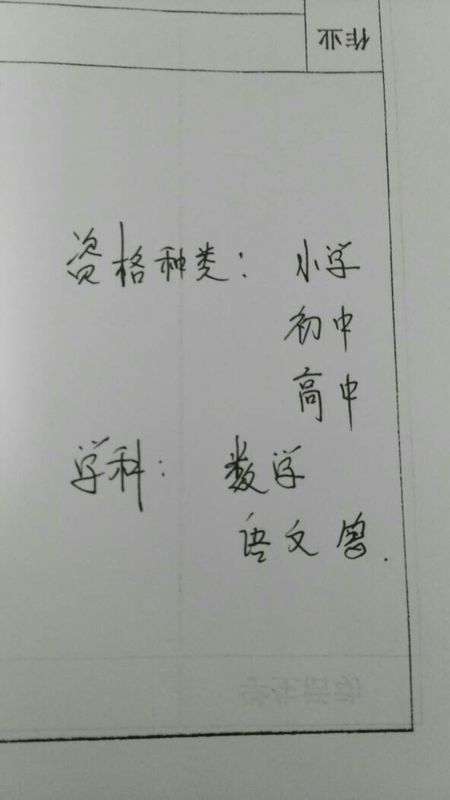 作业
资格种类: 小学
初中
高中
学科: 数学
语文